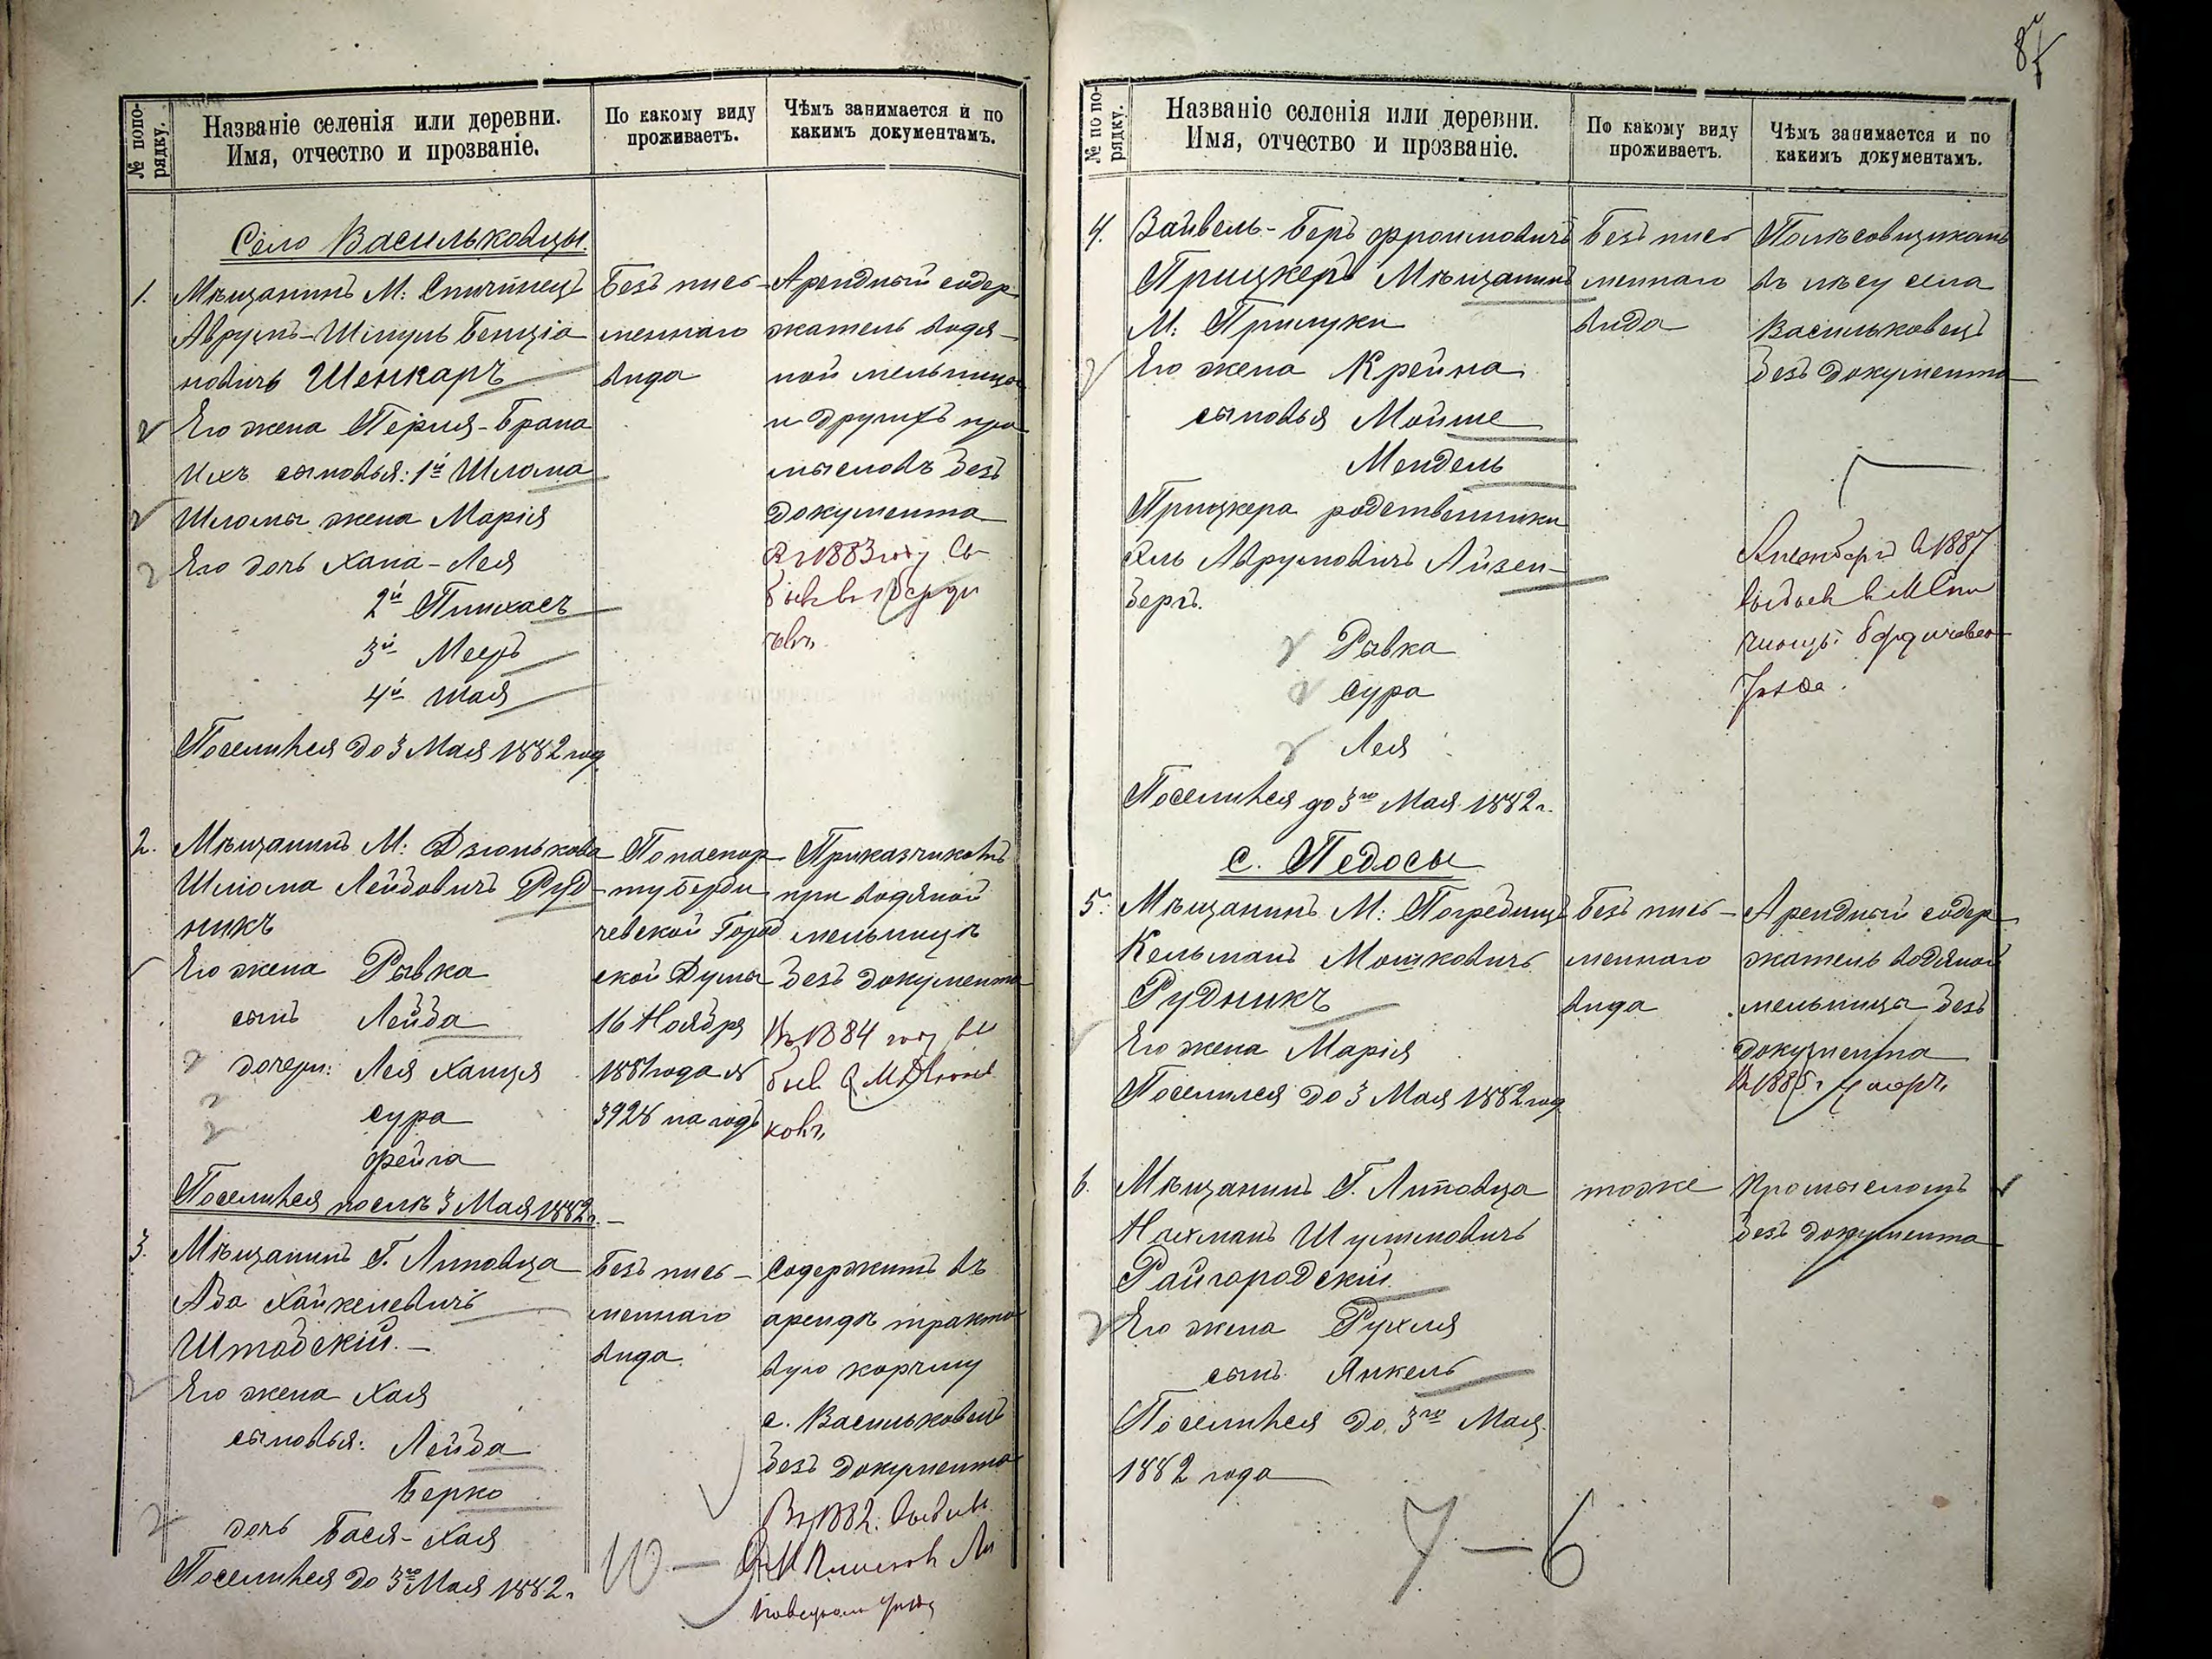 № попо-
рядку.
Названіе селенія или деревни.
Имя, отчество и прозваніе.
По какому виду
проживаетъ.
Чѣмъ занимается и по
какимъ документамъ.
Село Васильковцы.
1.
Мѣщанинъ М: Спичинецъ
Аврумъ-Шмуль Бенціо
новичъ Шенкаръ
Его жена Перля-Брана
Ихъ сыновья: 1й Шлома
Шломы жена Марія
Его дочь Хана-Лея
2й Пинхасъ
3й Мееръ
4й Шая
Поселился до 3 Мая 1882 год
Безъ пись-
меннаго
вида
Арендный содер
жатель водя-
ной мельницы
и другихъ про
мысловъ безъ
документа
Въ 1883 году вы
былъ въ г. Берди
чевъ
2.
Мѣщанинъ М: Дзюнькова
Шлома Лейбовичъ Руд-
никъ
Его жена Рывка
сынъ Лейба
дочери: Лея Ханця
Сура
Фейга
Поселился послѣ 3 Мая 1882 г.
По паспор
ту Берди
чевской Город
ской Думы
16 Ноября
1881 года №
3928 на годъ
Приказчикомъ
при водяной
мельницѣ
безъ документа
Въ 1884 году вы
былъ в М Дзюнь
ковъ
3.
Мѣщанинъ Г. Липовца
Аба Хайкелевичъ
Штабскій.
Его жена Хая
сыновья: Лейба
Берко
дочь Бася-Хая
Поселился до 3го Мая 1882 г.
Безъ пись-
меннаго
вида
Содержитъ въ
арендѣ тракто
вую корчму
с. Васильковецъ
безъ документа
Въ 1882. выбылъ
в М Ли
повецкого уѣзд
10 — 9
8
№ по по-
рядку.
Названіе селенія или деревни.
Имя, отчество и прозваніе.
По какому виду
проживаетъ.
Чѣмъ занимается и по
какимъ документамъ.
4.
Вайвель-Беръ Фроимовичъ
Прицкеръ Мѣщанинъ
М: Прилуки
Его жена Крейна
сыновья Мойше
Мендель
Прицкера родственники
Аврумовичъ Айзен-
бергъ.
Рывка
Сура
Лея
Поселился до 3го Мая 1882 г.
Безъ пись
меннаго
вида
Полѣсовщикомъ
въ лѣсу села
Васильковецъ
безъ документа
1887
выбылъ в М Спи
чинцы Бердичевско
уѣзда.
с. Педосы
5.
Мѣщанинъ М: Погребищъ
Кельманъ Мошковичъ
Рудникъ
Его жена Марія
Поселился до 3 Мая 1882 год
Безъ пись-
меннаго
вида
Арендный содер
жатель водяной
мельницы безъ
документа
В 1885 г умеръ
6.
Мѣщанинъ Г. Липовца
Нахманъ Шулимовичъ
Райгородскій
Его жена Рухля
сынъ Янкель
Поселился до 3го Мая
1882 года
тоже
Промысломъ
безъ документа
7 — 6